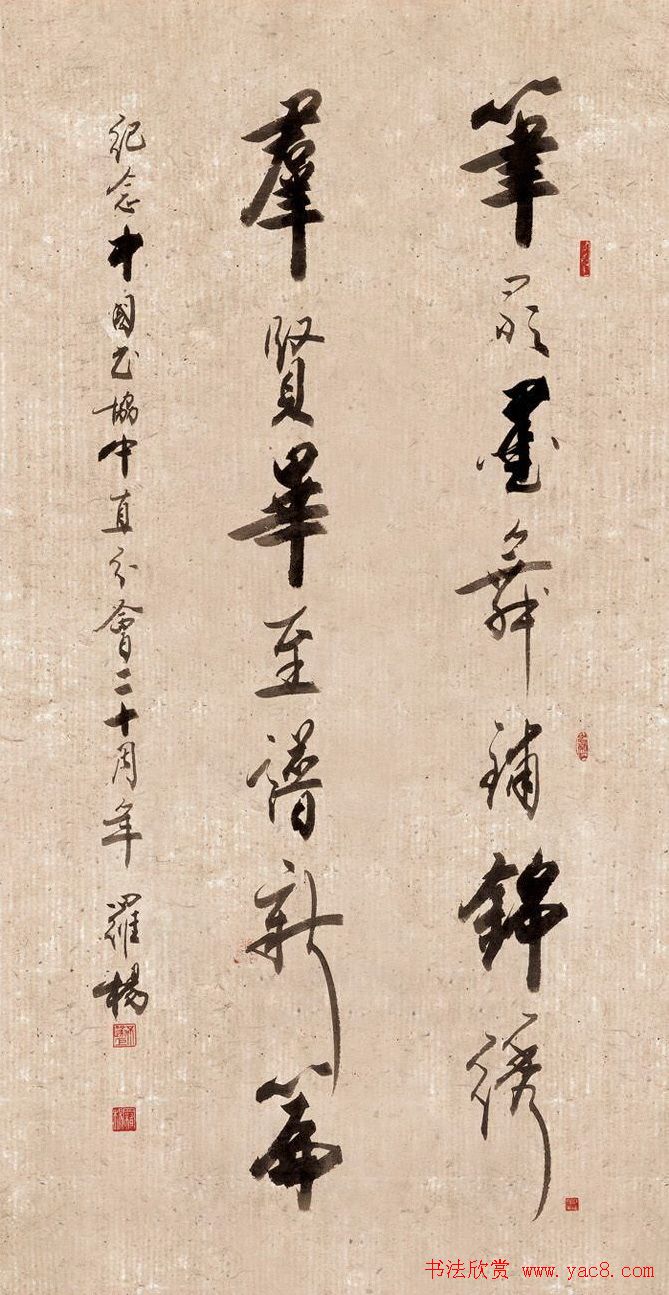 筆歌墨舞鋪錦綉
羣賢畢至譜新篇
紀念中國书協中直分會二十周年 羅楊
书法欣赏 www.yac8.com